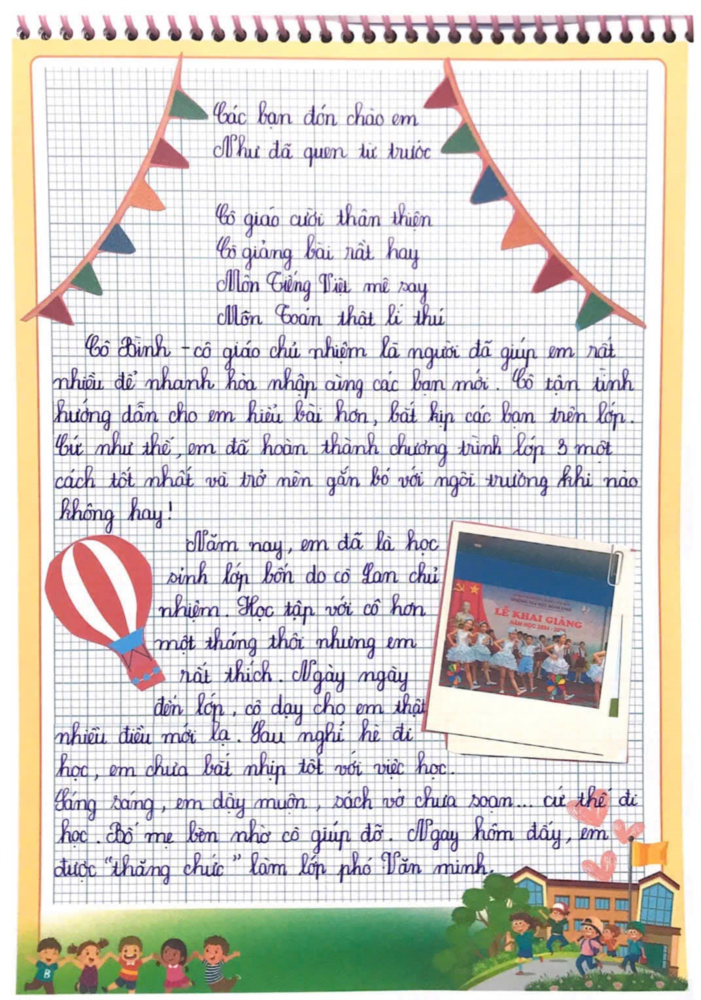 Các bạn đón chào em
Như đã quen từ trước
Cô giáo cười thân thiện
Cô giảng bài rất hay
Môn Tiếng Việt mê say
Môn Toán thật lí thú
Cô Bình - cô giáo chủ nhiệm là người đã giúp em rất
nhiều để nhanh hòa nhập cùng các bạn mới. Cô tận tình
hướng dẫn cho em hiểu bài hơn, bắt kịp các bạn trên lớp.
Cứ như thế, em đã hoàn thành chương trình lớp 3 một
cách tốt nhất và trở nên gắn bó với ngôi trường khi nào
không hay!
Năm nay, em đã là học
sinh lớp bốn do cô Lan chủ
nhiệm. Học tập với cô hơn
một tháng thôi nhưng em
rất thích. Ngày ngày
đến lớp, cô dạy cho em thật
nhiều điều mới lạ. Sau nghỉ hè đi
học, em chưa bắt nhịp tốt với việc học.
Sáng sáng, em dậy muộn, sách vở chưa soạn... cứ thế đi
học. Bố mẹ bèn nhờ cô giúp đỡ. Ngay hôm đấy, em
được "thăng chức" làm lớp phó Văn minh.
LỄ KHAI GIẢNG
NĂM HỌC 2024 - 2025
B